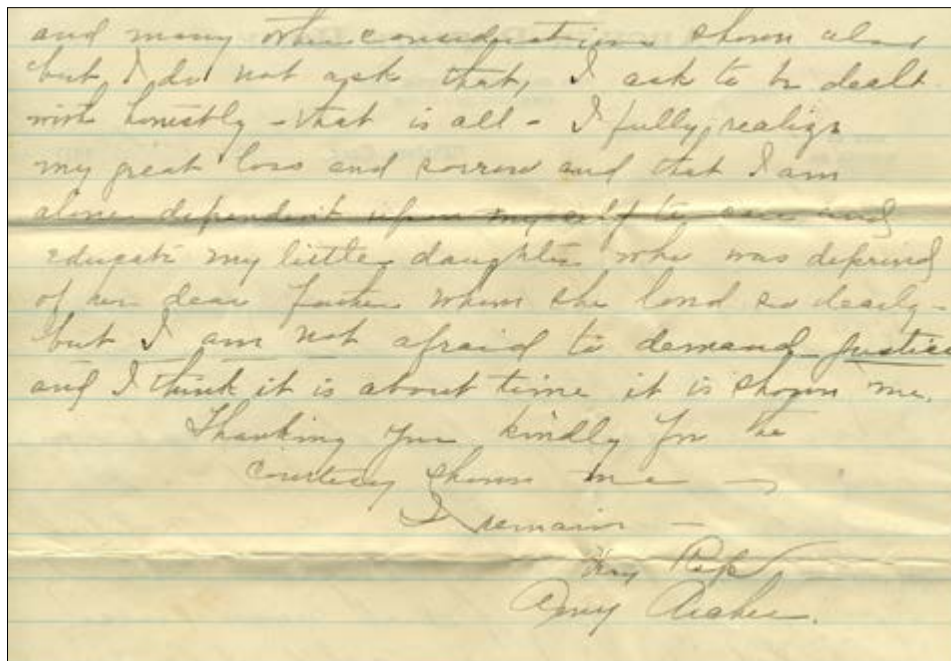 and many other considerations shown also
but, I do not ask that, I ask to be dealt
with honestly - that is all - I fully realize
my great loss and sorrow and that I am
alone dependent upon myself to care and
educate my little daughter who was deprived
of her dear father whom she loved so dearly -
but I am not afraid to demand justice
and I think it is about time it is shown me.
Thanking you kindly for the
courtesy shown me -
I remain -
Very Resp
Amy